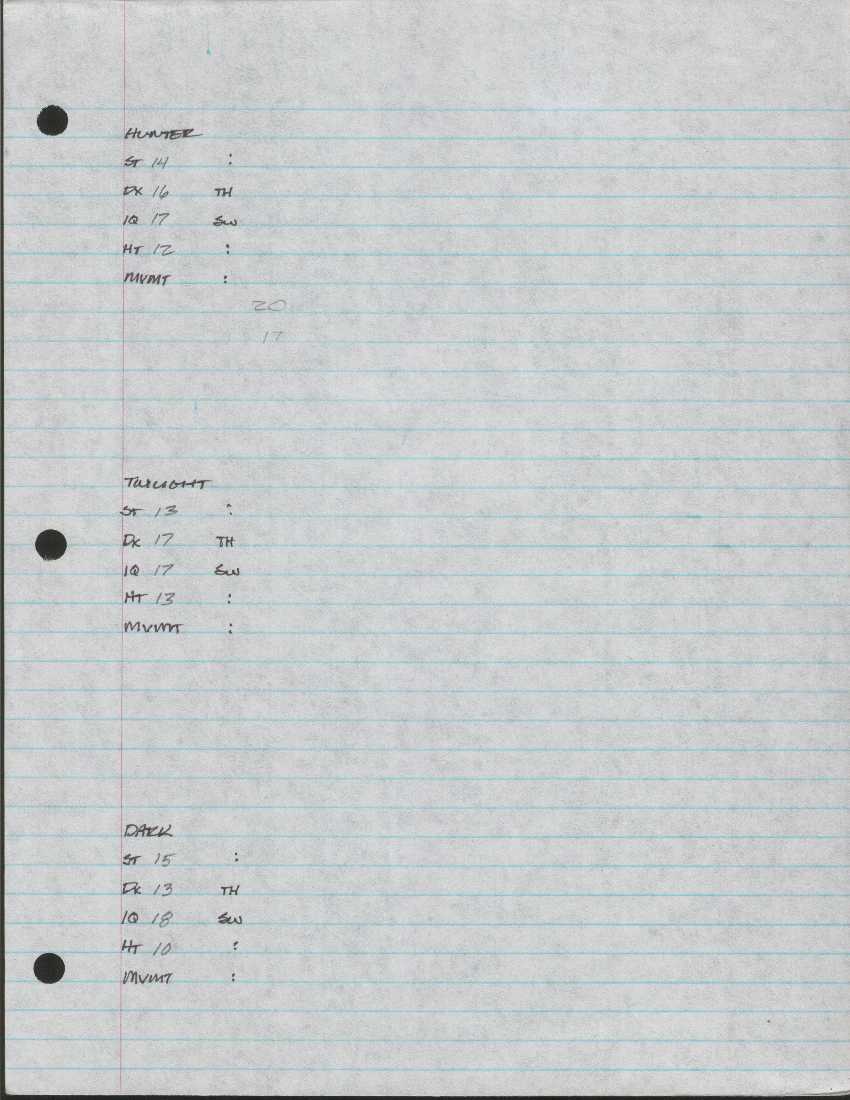 HUNTER
ST 14 :
DX 16 TH
IQ 17 SW
HT 12 :
MVMT :
20
17
TWILIGHT
ST 13 :
DX 17 TH
IQ 17 SW
HT 13 :
MVMT :
DARK
ST 15 :
DX 13 TH
IQ 18 SW
HT 10 :
MVMT :